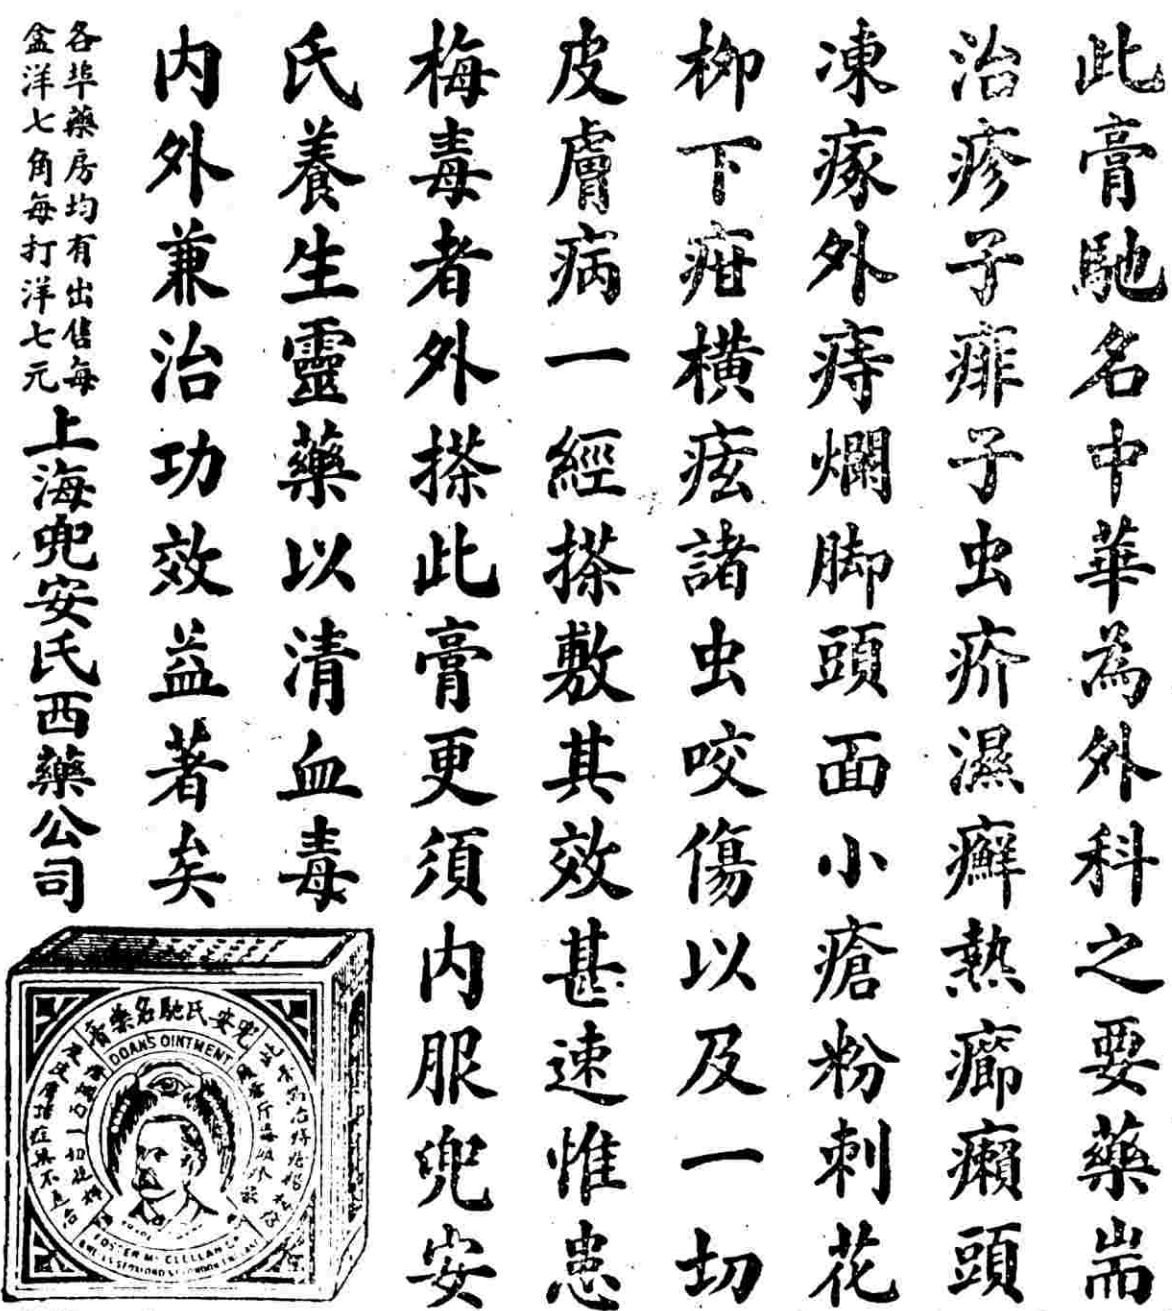 此膏馳名中華為外科之要藥耑
治疹子痱子虫疥濕癬熱癤癩頭
凍瘃外痔爛脚頭面小瘡粉刺花
柳下疳橫痃諸虫咬傷以及一切
皮膚病一經搽敷其效甚速惟患
梅毒者外搽此膏更須内服兜安
氏養生靈藥以清血毒
内外兼治功效益著矣
各埠藥房均有出售每
盒洋七角每打洋七元
上海兜安氏西藥公司
兜安氏馳名藥膏
DOAN'S OINTMENT
FOSTER McCLELLAN Co.